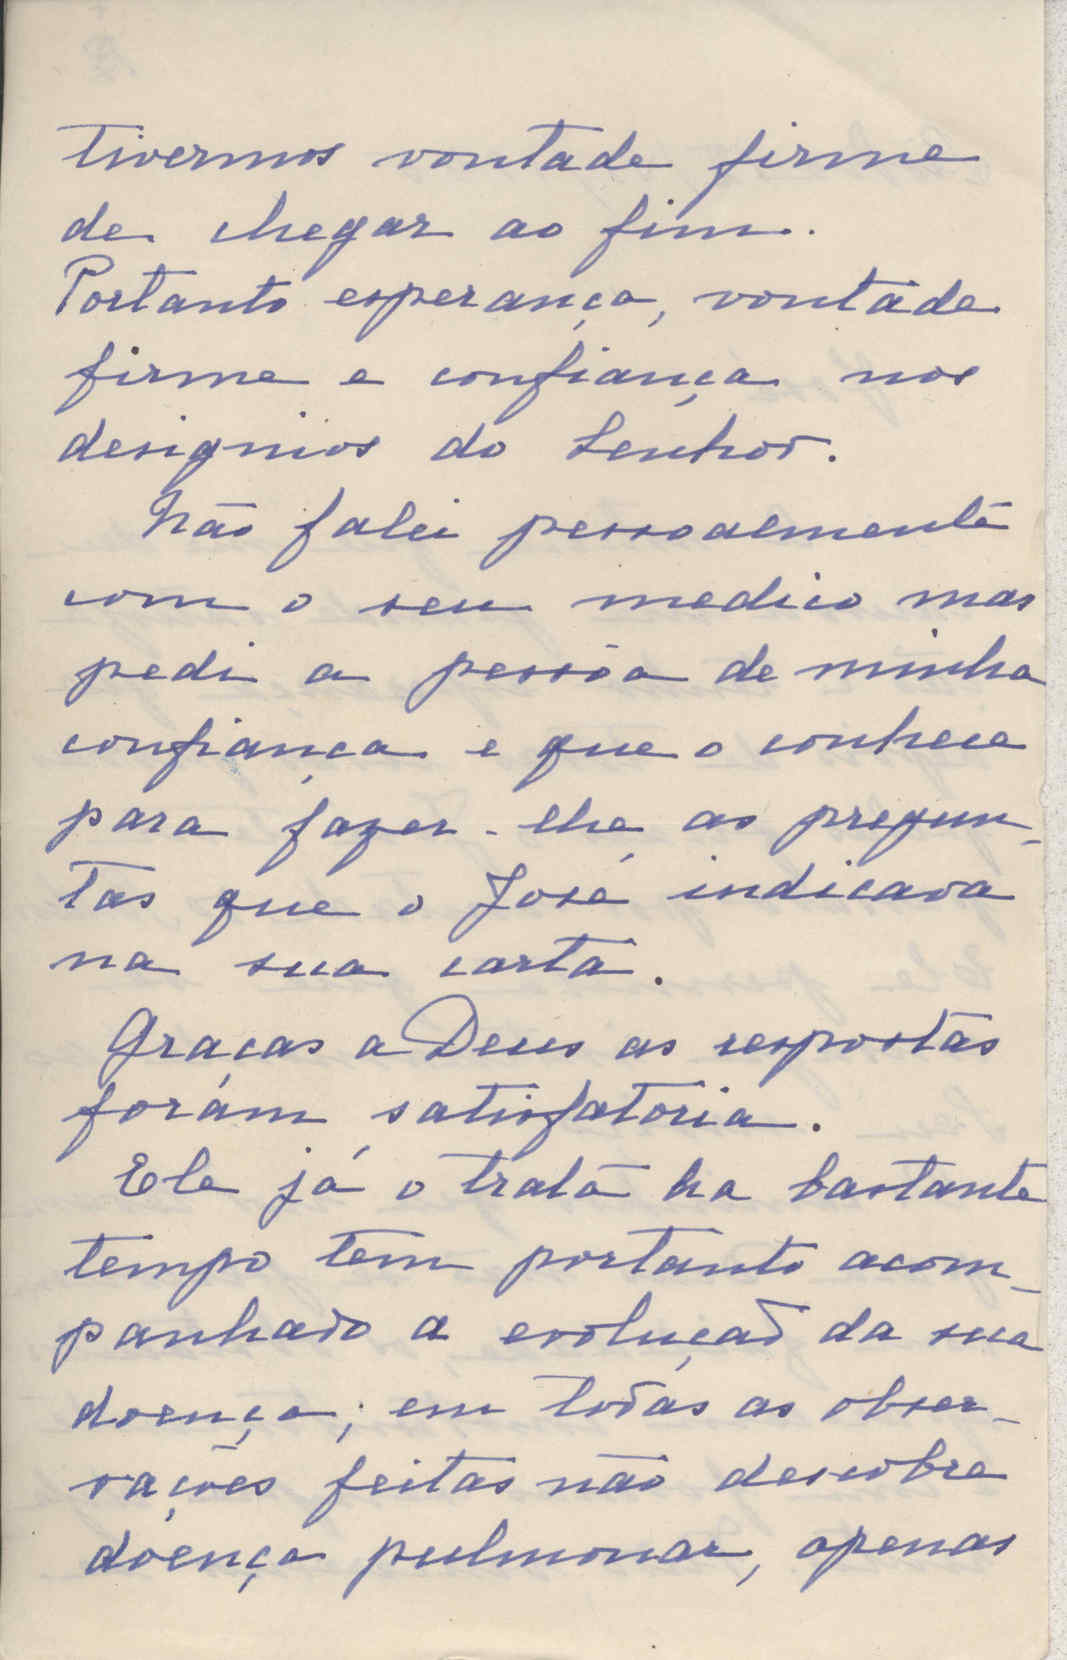 tivermos vontade firme
de chegar ao fim.
Portanto esperança, vontade
firme e confiança nos
designios do Senhor.
Não falei pessoalmente
com o seu medico mas
pedi a pessôa de minha
confiança e que o conhece
para fazer-lhe as pregun-
tas que o José indicava
na sua carta.
Graças a Deus as respostas
foram satisfatoria.
Ele já o trata ha bastante
tempo tem portanto acom-
panhado a evolução da sua
doença; em todas as obser-
vações feitas não descobre
doença pulmonar, apenas